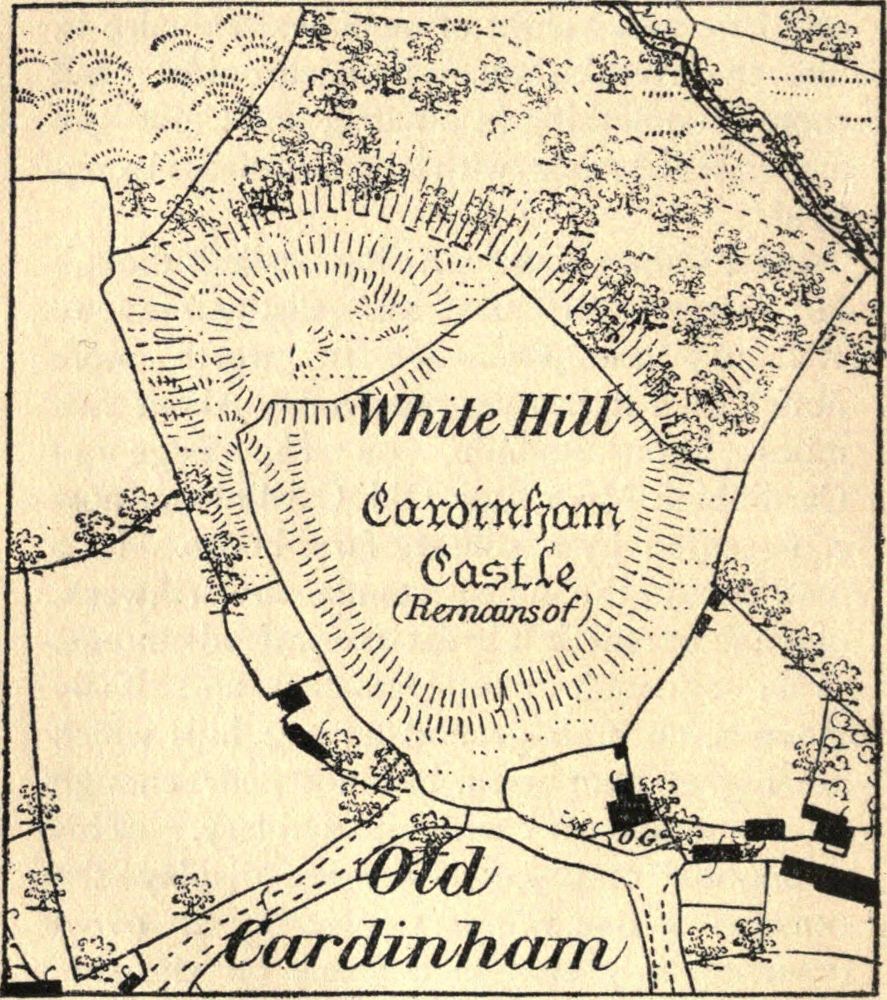 White Hill
Cardinham
Castle
(Remains of)
O.G
Old
Cardinham